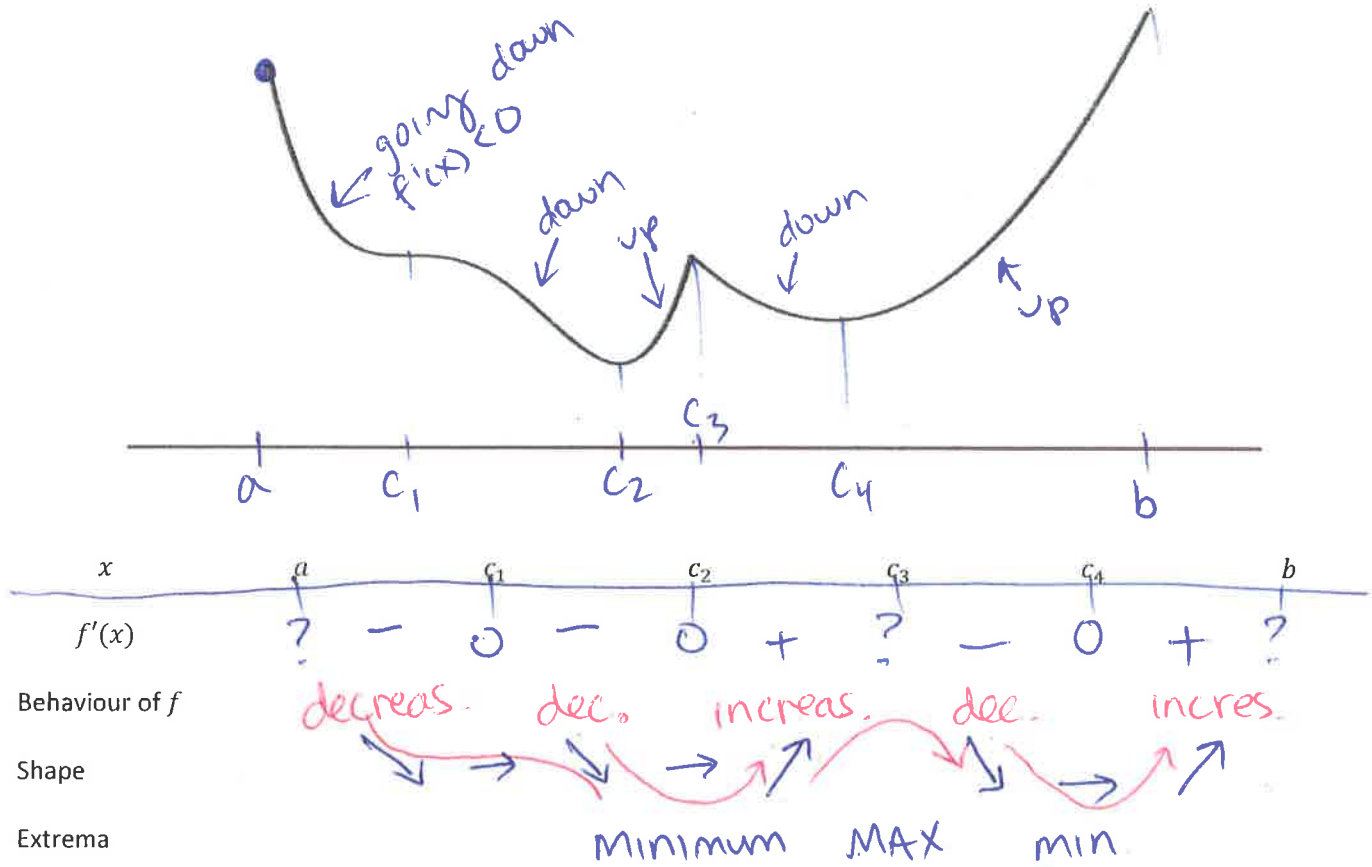 going down
f'(x) < 0
down
up
down
up
c₃
a c₁ c₂ c₄ b
x a c₁ c₂ c₃ c₄ b
f'(x) ? − 0 − 0 + ? − 0 + ?
Behaviour of f decreas. dec. increas. dec. incres.
Shape
Extrema Minimum MAX min